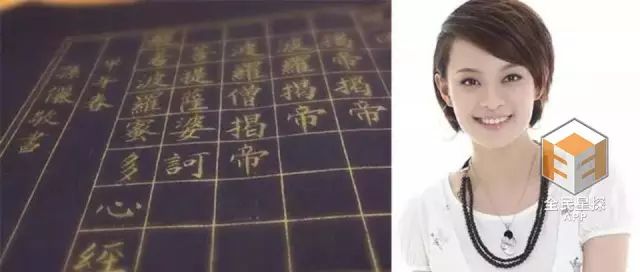 揭帝揭帝
波羅揭帝
波羅僧揭帝
菩提薩婆訶
波羅蜜多心經
甲午春
孫儷敬書
全民星探
APP